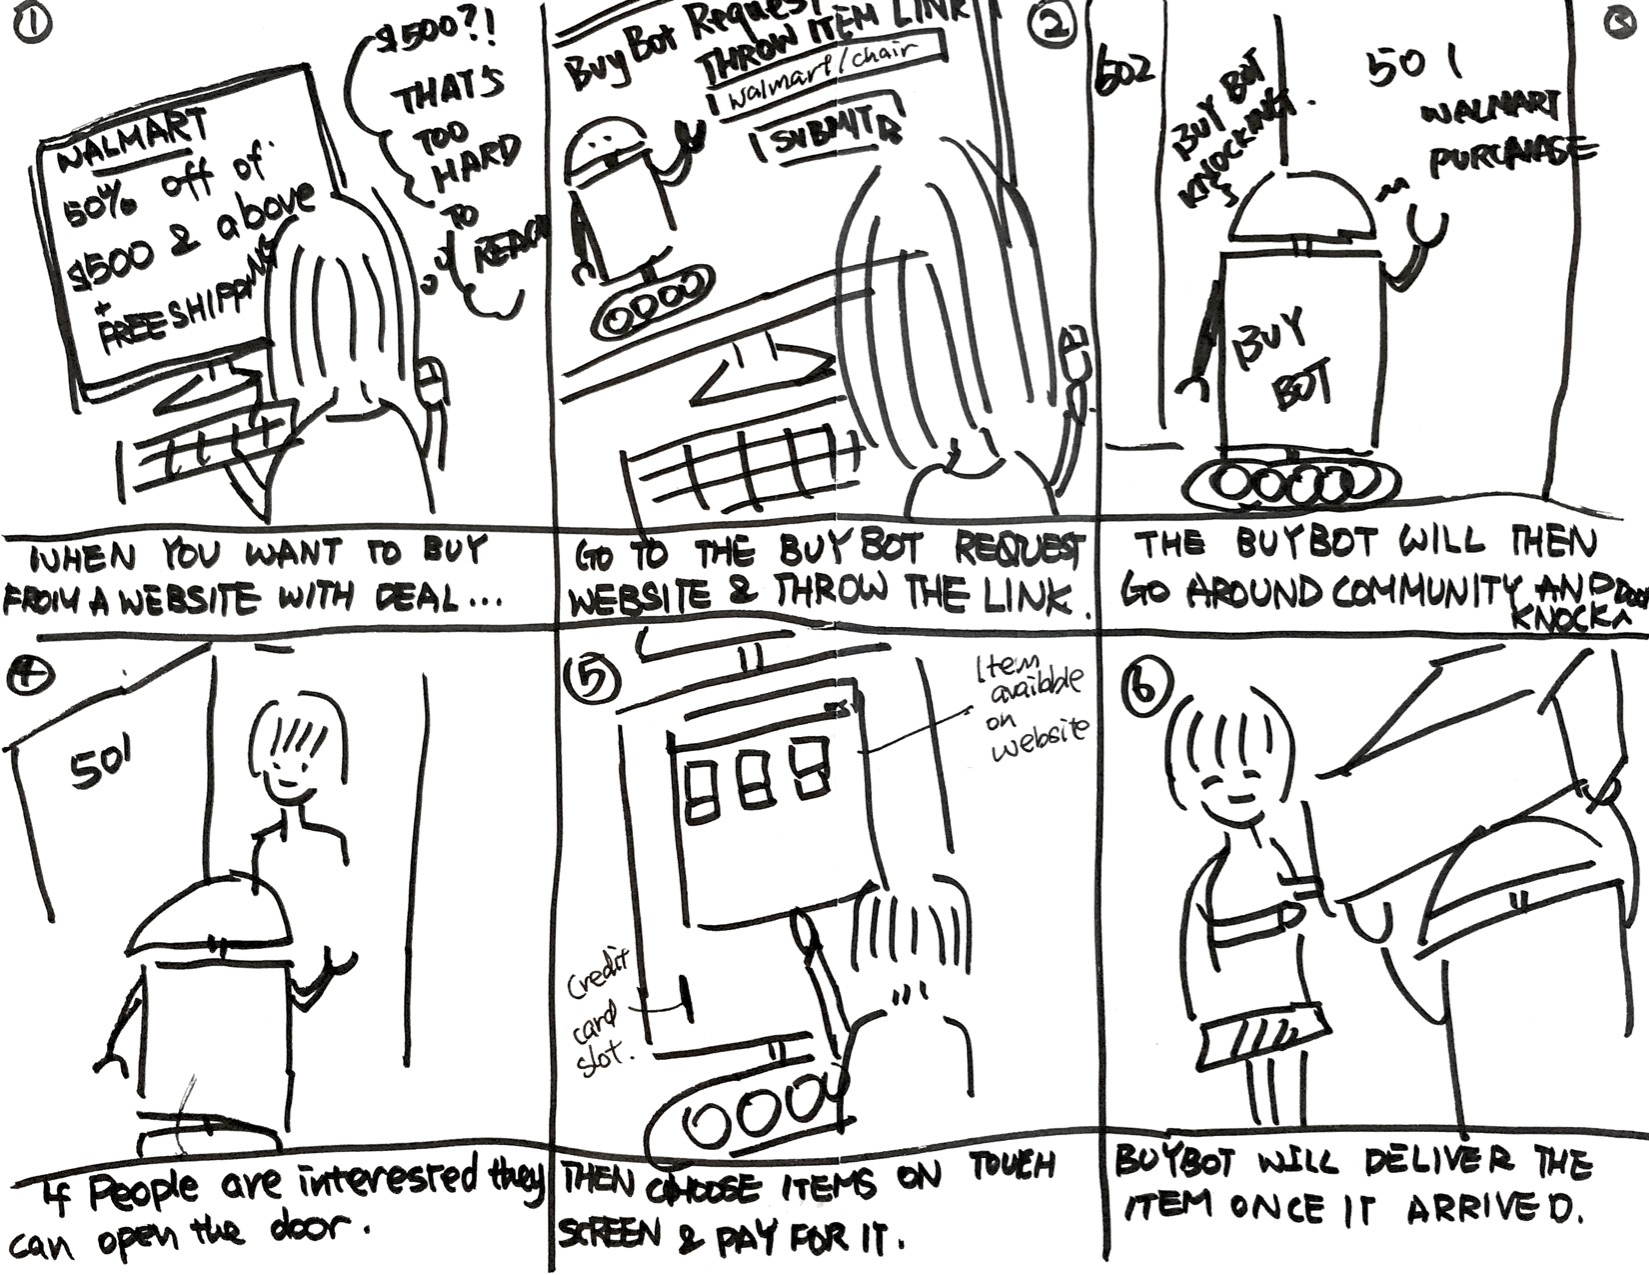 1
WALMART
50% off of
$500 & above
+
FREE SHIPPING
$500?!
THAT'S
TOO
HARD
TO
REACH
WHEN YOU WANT TO BUY
FROM A WEBSITE WITH DEAL...
2
BuyBot Request
THROW ITEM LINK
walmart/chair
SUBMIT
GO TO THE BUYBOT REQUEST
WEBSITE & THROW THE LINK.
3
602
BUY BOT
KNOCKING.
501
WALMART
PURCHASE
BUY
BOT
THE BUYBOT WILL THEN
GO AROUND COMMUNITY AND DOOR
KNOCK
4
501
If People are interested they
can open the door.
5
Item
availble
on
website
credit
card
slot.
THEN CHOOSE ITEMS ON TOUCH
SCREEN & PAY FOR IT.
6
BUYBOT WILL DELIVER THE
ITEM ONCE IT ARRIVED.